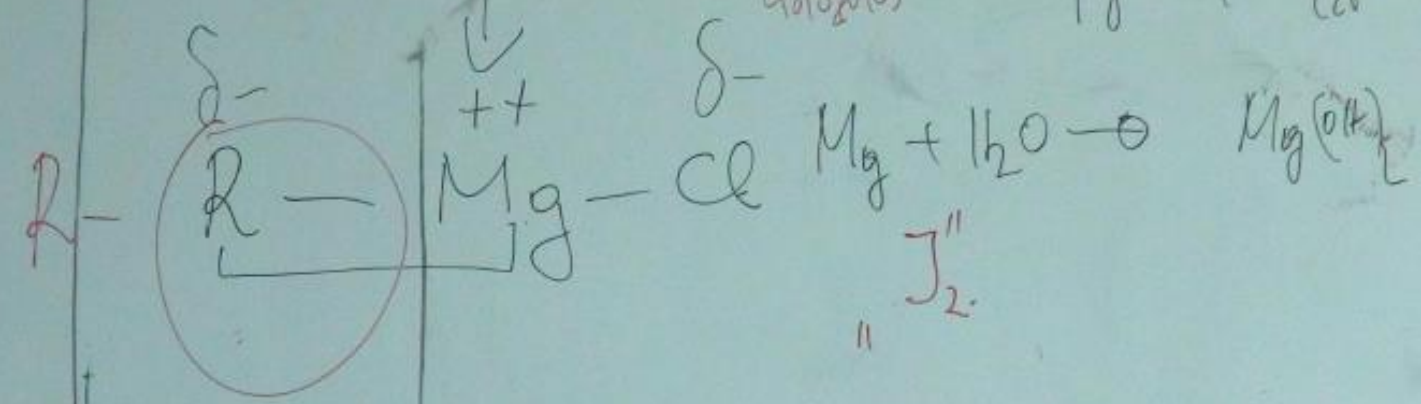 δ- ++ δ-
R- R — Mg — Cl Mg + H₂O → Mg(OH)₂
"J₂."